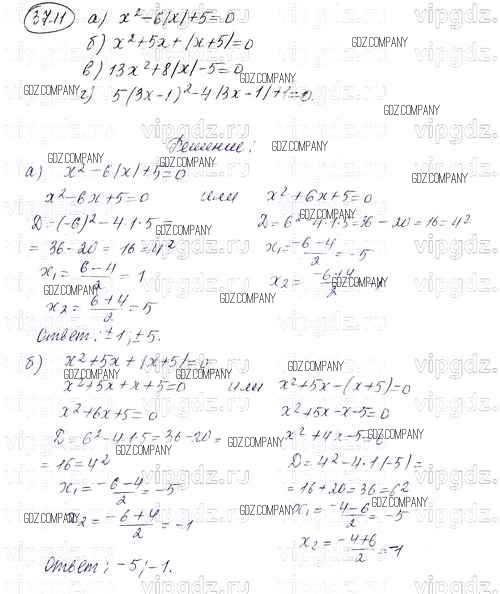 37.11 а) x²-6|x|+5=0
б) x²+5x+|x+5|=0
в) 13x²+8|x|-5=0
г) 5(3x-1)²-4|3x-1|+1=0.
Решение:
а) x²-6|x|+5=0
x²-6x+5=0 или x²+6x+5=0
D=(-6)²-4·1·5= D=6²-4·1·5=36-20=16=4²
=36-20=16=4² x₁=(-6-4)/2=-5
x₁=(6-4)/2=1 x₂=(-6+4)/2
x₂=(6+4)/2=5
Ответ: ±1; ±5.
б) x²+5x+|x+5|=0
x²+5x+x+5=0 или x²+5x-(x+5)=0
x²+6x+5=0 x²+5x-x-5=0
D=6²-4·1·5=36-20= x²+4x-5=0
=16=4² D=4²-4·1(-5)=
x₁=(-6-4)/2=-5 =16+20=36=6²
x₂=(-6+4)/2=-1 x₁=(-4-6)/2=-5
x₂=(-4+6)/2=1
Ответ: -5; -1.
GDZ.COMPANY
vipgdz.ru